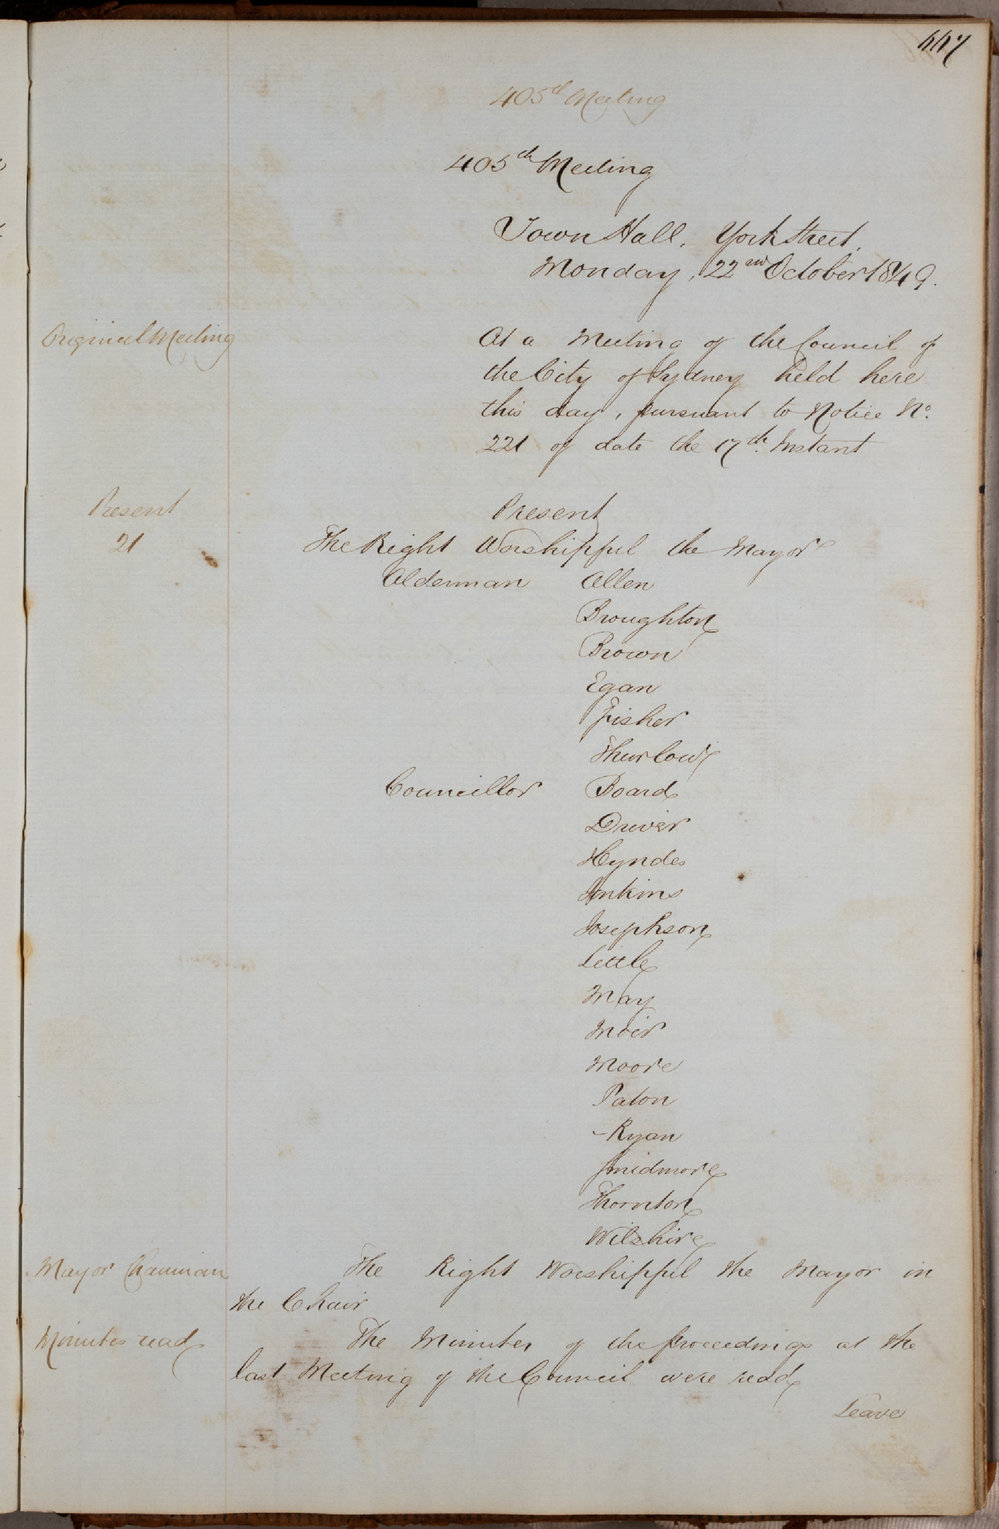 447
405th Meeting
405th Meeting
Town Hall, York Street,
Monday, 22nd October 1849.
Original Meeting
At a Meeting of the Council of
the City of Sydney held here
this day, pursuant to Notice No.
221 of date the 17th. Instant
Present
21
Present
The Right Worshipful the Mayor
Alderman Allen
Broughton
Brown
Egan
Fisher
Thurlow
Councillor Board
Driver
Hyndes
Jenkins
Josephson
Little
May
Moir
Moore
Paton
Ryan
Smidmore
Thornton
Wilshire
Mayor Chairman
The Right Worshipful the Mayor in
the Chair
Minutes read
The Minutes of the proceedings at the
last Meeting of the Council were read
Leave